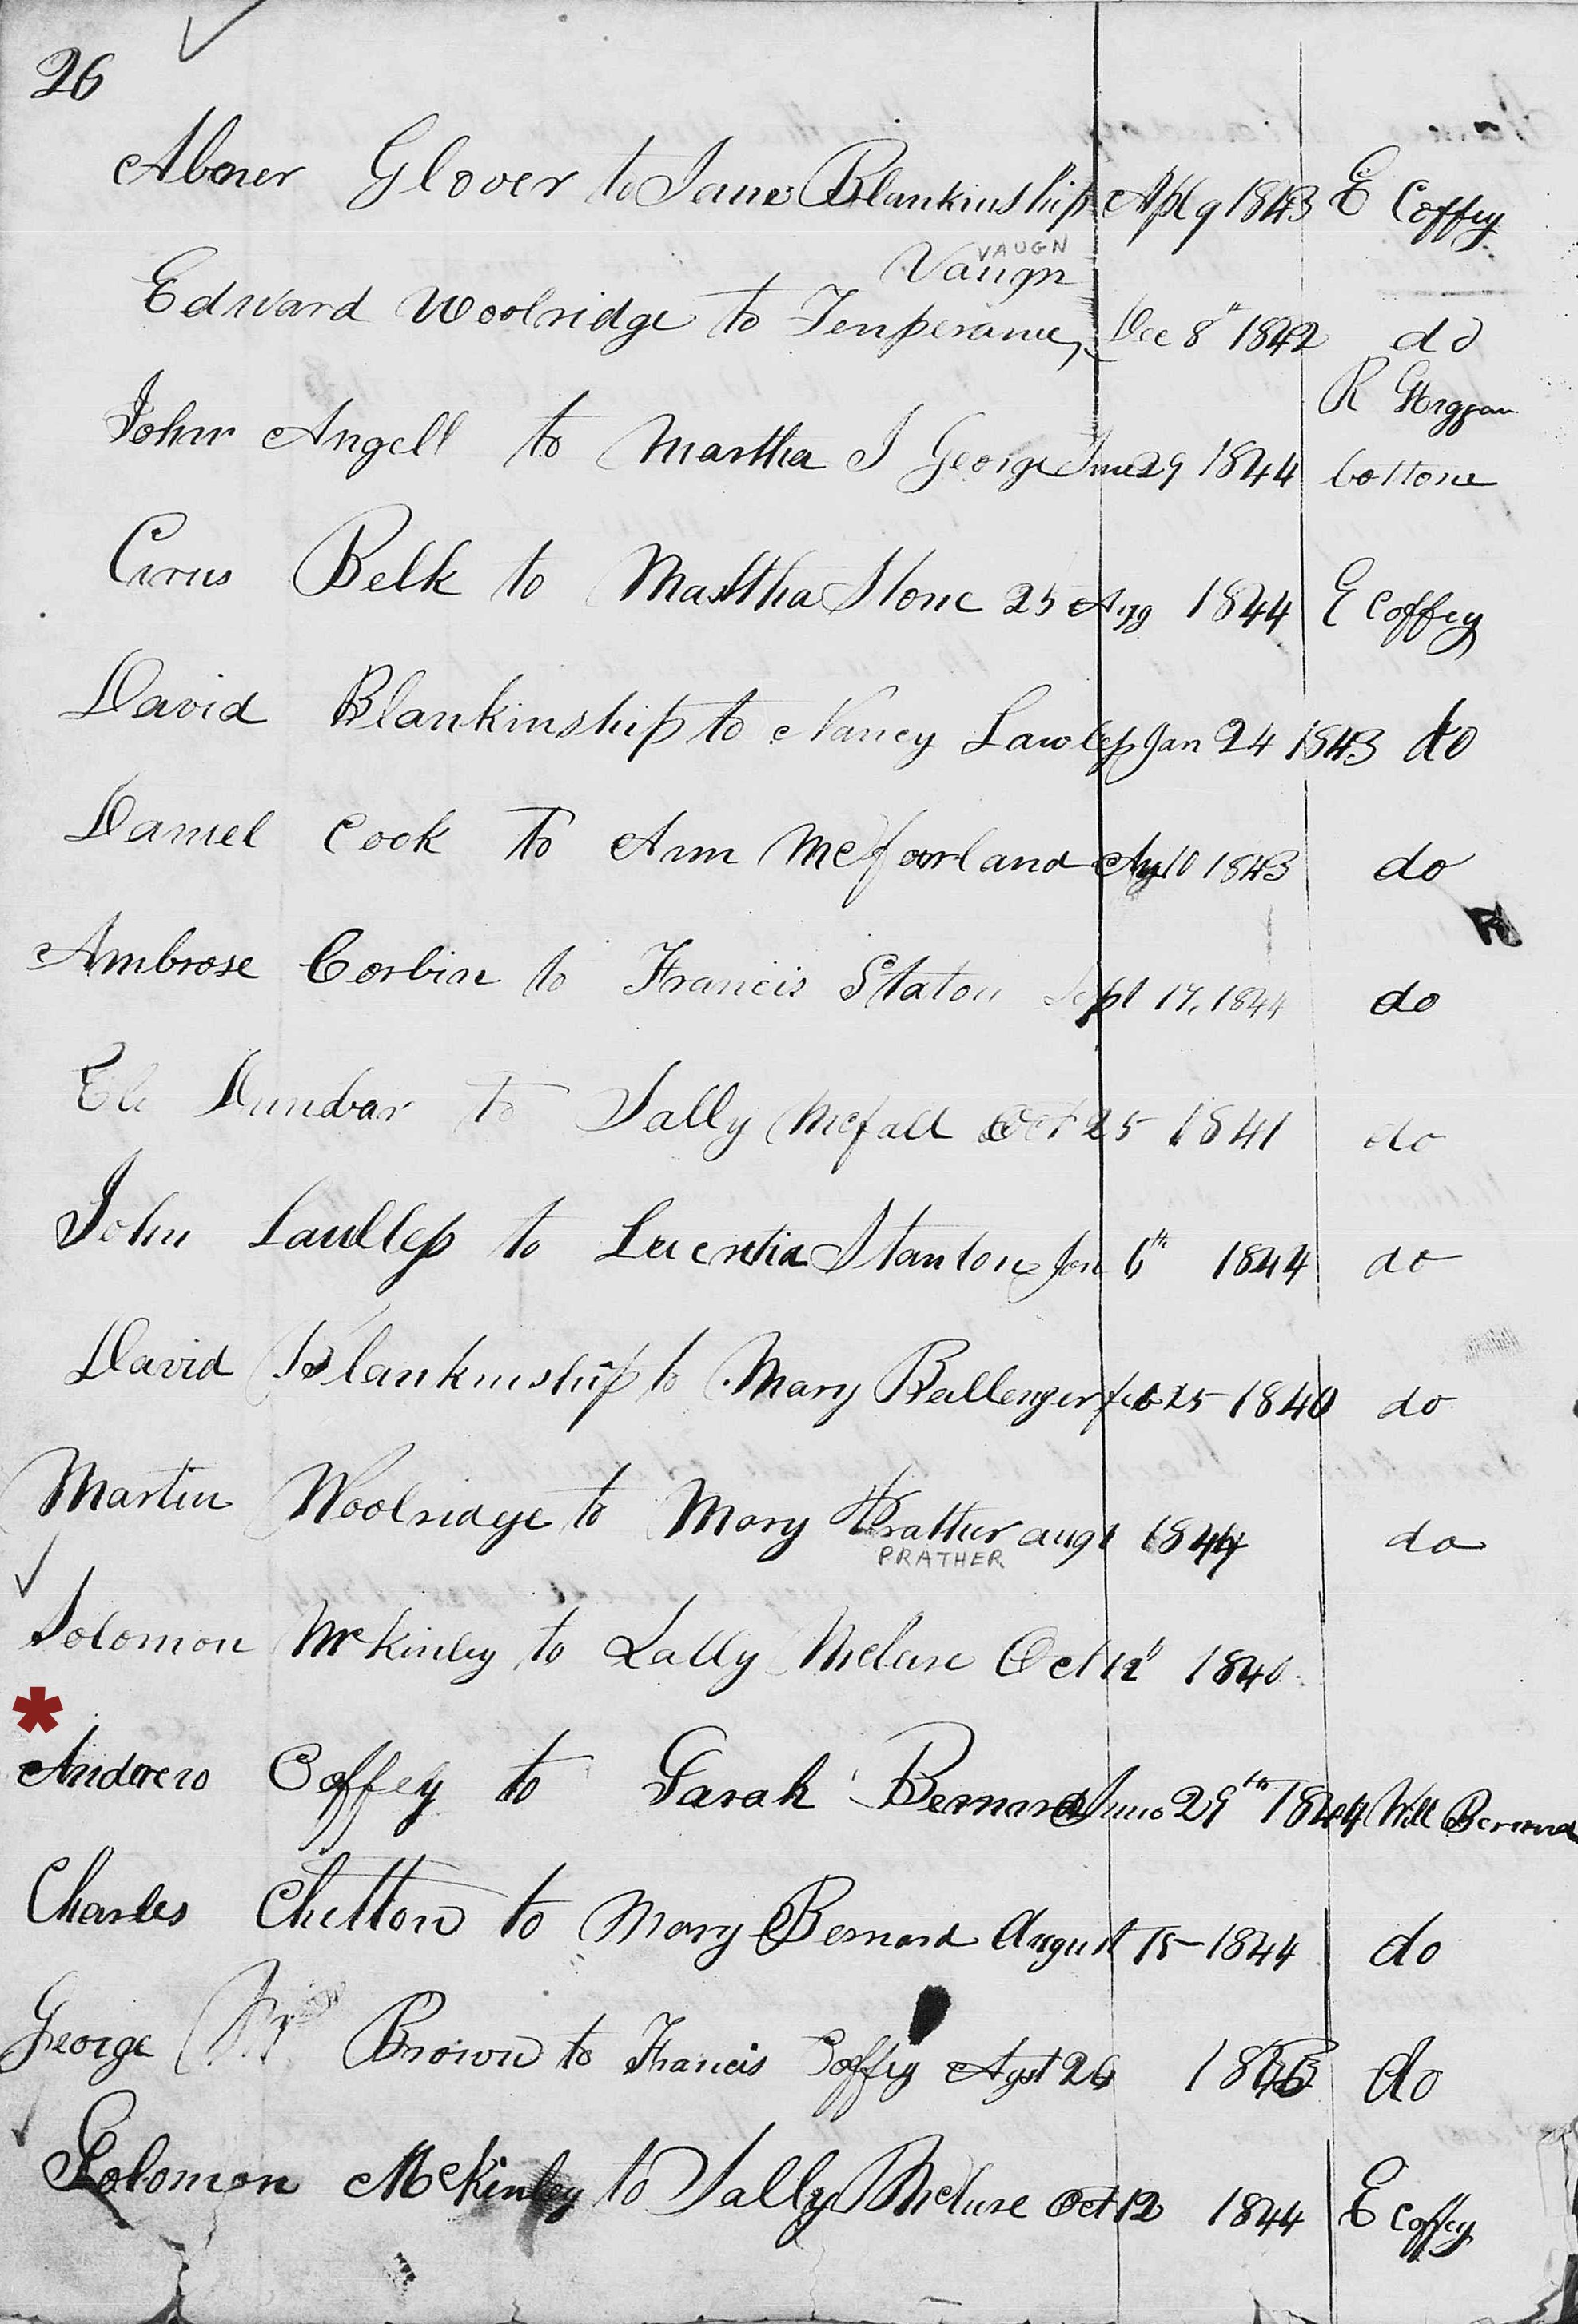 26
Abner Glover to Jane Blankinship Apl 9 1843 E Coffey
VAUGN
Vaugn
Edward Woolridge to Temperance Dec 8th 1842 do
R
John Angell to Martha J George June 29 1844 bottone
Cirus Belk to Marttha Stone 25 Aug 1844 E Coffey
David Blankinship to Nancy Lawley Jan 24 1843 do
Daniel Cook to Ann Mcfarland Ag 10 1843 do
Ambrose Corbin to Francis Staton Sept 17, 1844 do
Eli Dunbar to Sally Mcfall Oct 25 1841 do
John to Lucretia Stanton Jan 6th 1844 do
David Blankinship to Mary Ballenger feb 25 1840 do
Martin Woolridge to Mary Prather aug 1 1844 do
PRATHER
Solomon McKinley to Sally Mclure Oct 12th 1840
* Andrew Coffey to Sarah Bernard June 29th 1844 Will Bernard
Charles Chelton to Mary Bernard August 15 - 1844 do
George Brown to Francis Coffey Agst 26 do
Solomon McKinley to Sally Mclure Oct 12 1844 E Coffey